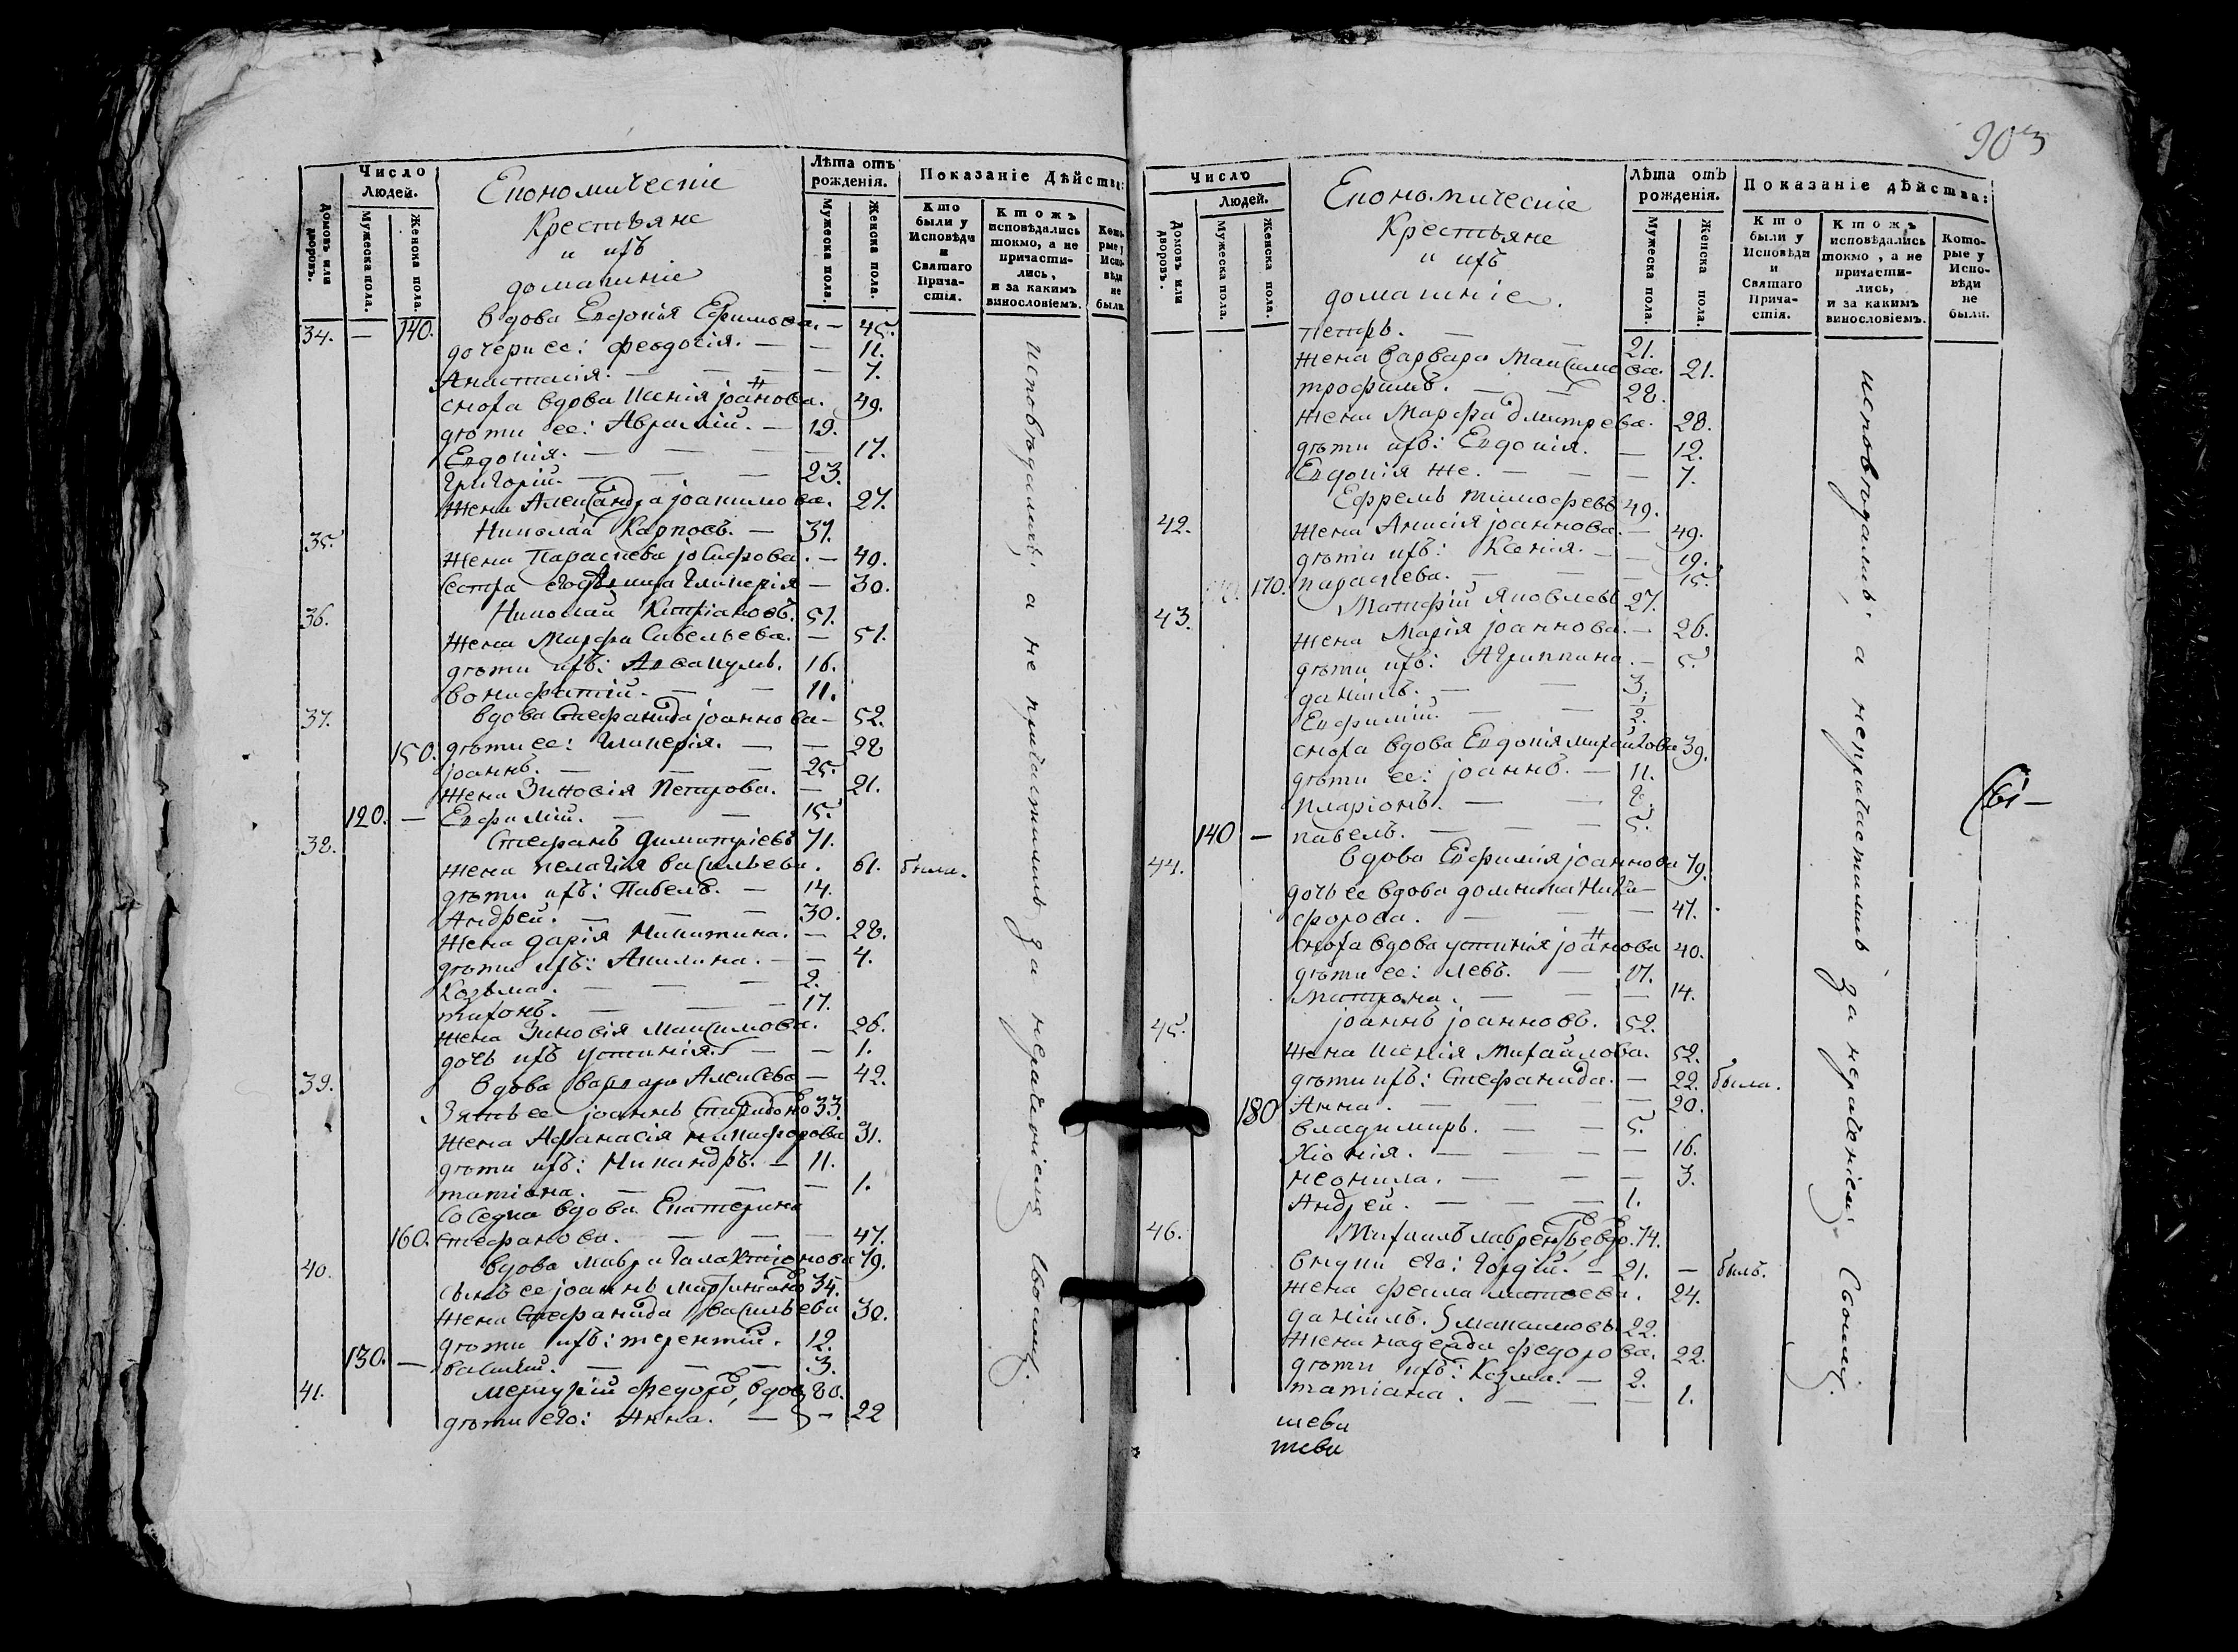 903
Число
Людей.
Домовъ или дворовъ.
Мужеска пола.
Женска пола.
Економическіе
Крестьяне
и ихъ
домашніе
Лѣта отъ рожденія.
Мужеска пола.
Женска пола.
Показаніе Дѣйства:
Кто были у Исповѣди и Святаго Прича- стія.
Ктожъ исповѣдались токмо, а не причасти- лись, и за какимъ винословіемъ.
Кото- рые у Испо- вѣди не были.
34. — 140. вдова Евдокія Ефимова. — 45.
дочери ее: Феодосія. — — 11.
Анастасія. — — — 7.
сноха вдова Ксенія іоаннова. 49.
дѣти ее: Авраамій. — 19.
Евдокія. — — — 17.
Григорій. — — — 23.
жена Александра іоакимова. 27.
35. Николай Карповъ. — 37.
жена Параскева іосифова. — 49.
сестра его девица Гликерія — 30.
36. Николай Кипріановъ. 51.
жена Марфа Савельева. — 51.
дѣти ихъ: Аввакумъ. 16.
вонифатій. — — 11.
37. вдова Стефанида іоаннова — 52.
150. дѣти ее: Гликерія. — — 28
іоаннъ. — — — 25.
жена Зиновія Петрова. — 21.
120. — Евфимій. — — 15.
38. Стефанъ димитріевъ 71.
жена пелагія васильева. 61. была.
дѣти ихъ: Павелъ. — 14.
Андрей. — — — 30.
жена дарія Никитина. — 28.
дѣти ихъ: Акилина. — — 4.
Козьма. — — — 2.
тихонъ. — — — 17.
жена Зиновія Максимова. 26.
дочь ихъ устинія. — — 1.
39. вдова варвара Алексеева — 42.
Зять ее іоаннъ Спиридоно 33.
жена Афанасія никифорова 31.
дѣти ихъ: Никандръ. — 11.
татіана. — — — 1.
соседка вдова Екатерина
160. Стефанова. — — — 47.
40. вдова мавра Галактіонова 79.
сынъ ее іоаннъ мартиніано 34.
жена Стефанида васильева 30.
дѣти ихъ: терентій. 12.
130. — василій. — — — 3.
41. меркурій федоровъ, вдов 80.
дѣти его: Анна. — — 22
исповѣдались, а не причастились за нераченіемъ своимъ.
Число
Людей.
Домовъ или дворовъ.
Мужеска пола.
Женска пола.
Економическіе
Крестьяне
и ихъ
домашніе.
Лѣта отъ рожденія.
Мужеска пола.
Женска пола.
Показаніе дѣйства:
Кто были у Исповѣди и Святаго Прича- стія.
Ктожъ исповѣдались токмо, а не причасти- лись, и за какимъ винословіемъ.
Кото- рые у Испо- вѣди не были.
петръ. — — 21.
жена варвара Максимова. 21.
трофимъ. — — 28.
жена Марфа дмитрева. 28.
дѣти ихъ: Евдокія. — 12.
Евдокія же. — — — 7.
42. Ефремъ тимофеевъ 49.
жена Анисія іоаннова. — 49.
дѣти ихъ: Ксенія. — — 19.
170. параскева. — — — 15.
43. Матфій Яковлевъ 27.
жена Марія іоаннова. — 26.
дѣти ихъ: Агриппина. — 5.
даніилъ. — — 3.
Евфимій. — — 2.
сноха вдова Евдокія михайлова 39.
дѣти ее: іоаннъ. — 11.
иларіонъ. — — 8.
140 — павелъ. — — — 5.
44. вдова Евфимія іоаннова 79.
дочь ее вдова домника Ники-
форова. — — — 47.
сноха вдова устинія іоаннова 40.
дѣти ее: левъ. — 17.
Матрона. — — — 14.
45. іоаннъ іоанновъ. 52.
жена Ксенія Михайлова. 52.
дѣти ихъ: Стефанида. — 22. была.
180 Анна. — — — 20.
владимиръ. — — 5.
Хіонія. — — — 16.
неонила. — — — 3.
Андрей. — — — 1.
46. Михаилъ лаврентьевъ, вдо. 74.
внуки его: Гордій. — 21. — былъ.
жена фекла матвеева. 24.
даніилъ. 22.
жена надежда федорова. 22.
дѣти ихъ: Козма. — 2.
татіана. — — — 1.
исповѣдались, а непричастились за нераченіемъ своимъ.